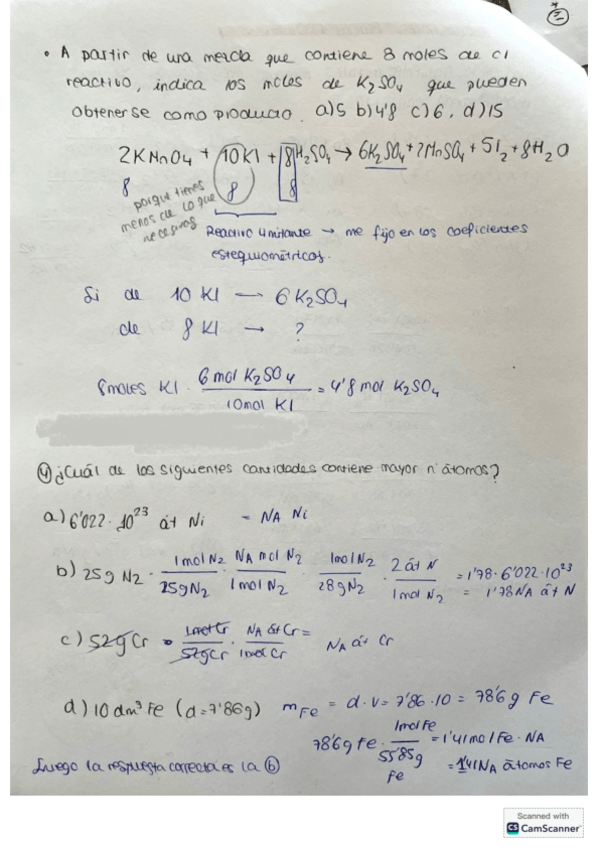 • A partir de una mezcla que contiene 8 moles de c/
reactivo, indica los moles de K₂SO₄ que pueden
obtenerse como producto. a) 5 b) 4'8 c) 6, d) 15
2KMnO₄ + 10KI + 8H₂SO₄ → 6K₂SO₄ + 2MnSO₄ + 5I₂ + 8H₂O
8 8 8
porque tienes
menos de lo que
necesitas
Reactivo limitante → me fijo en los coeficientes
estequiométricos.
Si de 10 KI → 6 K₂SO₄
de 8 KI → ?
8moles KI · 6 mol K₂SO₄ / 10mol KI = 4'8 mol K₂SO₄
④ ¿Cuál de las siguientes cantidades contiene mayor nº átomos?
a) 6'022 · 10²³ át Ni = NA Ni
b) 25g N₂ · 1mol N₂ / 25g N₂ · NA mol N₂ / 1mol N₂ · 1mol N₂ / 28g N₂ · 2 át N / 1mol N₂ = 1'78 · 6'022 · 10²³
= 1'78 NA át N
c) 52g Cr · 1mol Cr / 52g Cr · NA át Cr / 1mol Cr = NA át Cr
d) 10 dm³ Fe (d = 7'86g) mFe = d · V = 7'86 · 10 = 78'6 g Fe
78'6g Fe · 1mol Fe / 55'85 g Fe = 1'41 mol Fe · NA
= 1'41 NA átomos Fe
Luego la respuesta correcta es la ⓑ
Scanned with
CS CamScanner